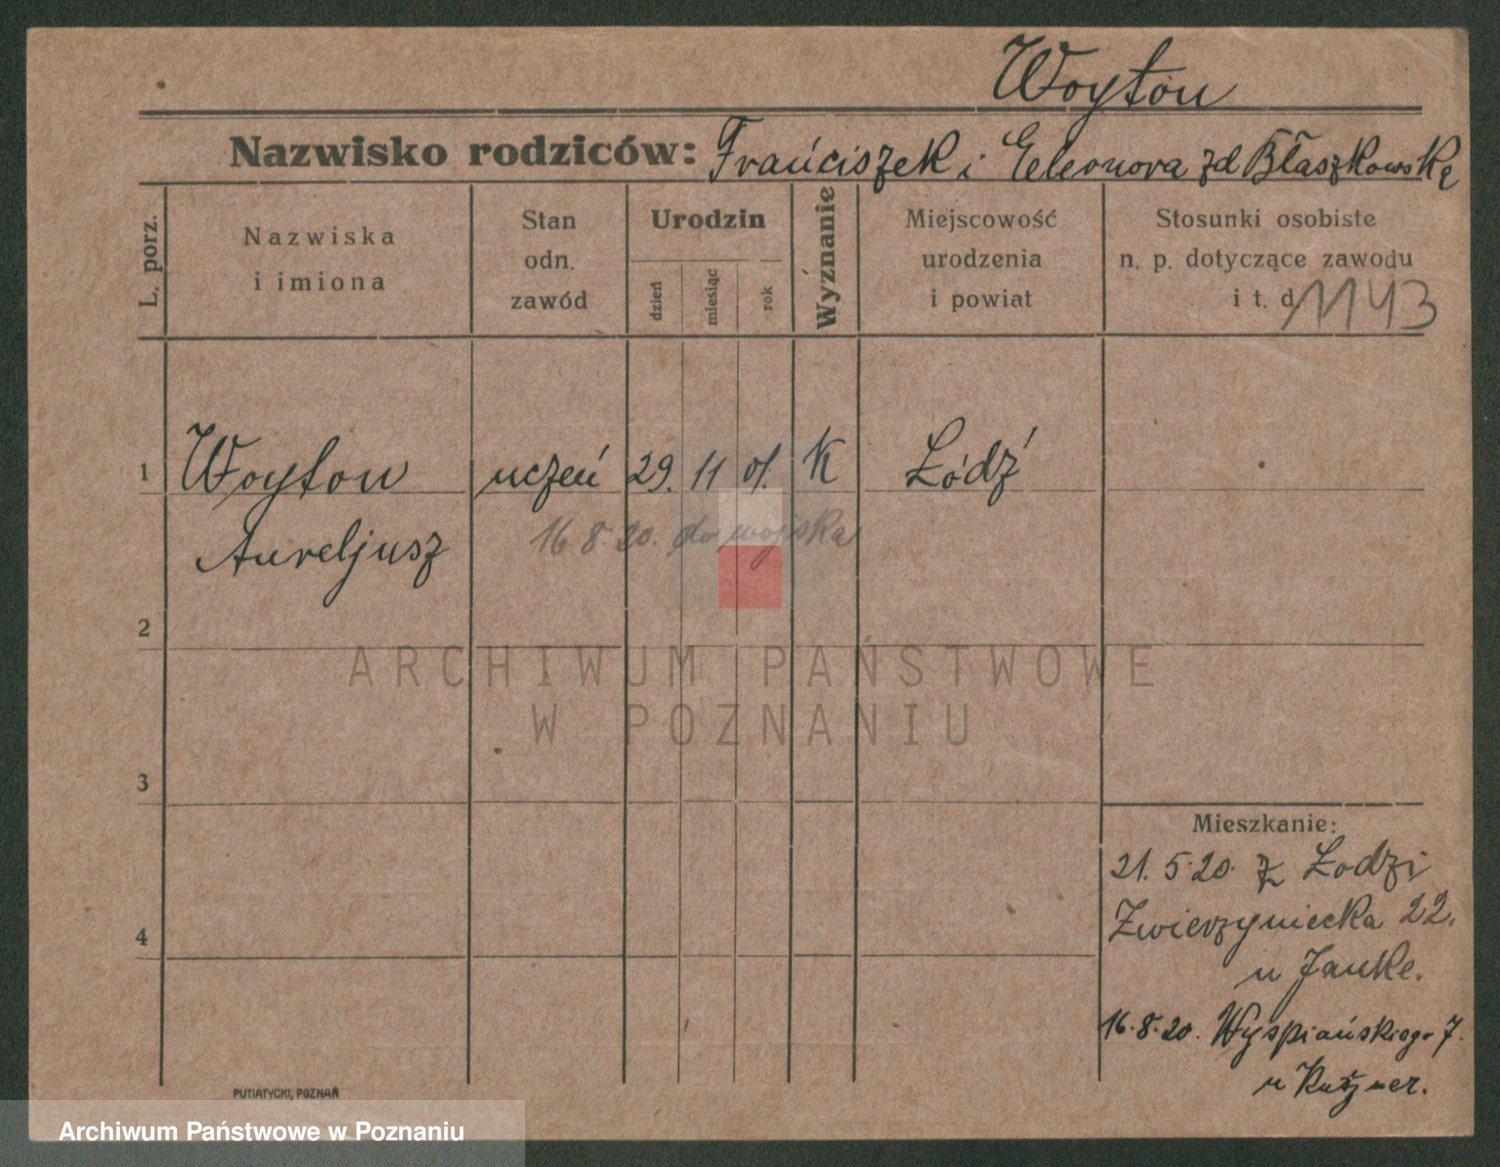 Woyton
Nazwisko rodziców: Franciszek i Eleonora zd Błaszkowskę
L. porz.
Nazwiska
i imiona
Stan
odn.
zawód
Urodzin
dzień
miesiąc
rok
Wyznanie
Miejscowość
urodzenia
i powiat
Stosunki osobiste
n. p. dotyczące zawodu
i t. d. 1143
1 Woyton uczeń 29. 11 01. K Łódź
Aureljusz 16. 8. 20. do wojska
2
ARCHIWUM PAŃSTWOWE
W POZNANIU
3
Mieszkanie:
21. 5. 20. z Łodzi
Zwierzyniecka 22.
4
u Janke.
16. 8. 20. Wyspiańskiego 7.
u
PUTIATYCKI, POZNAŃ
Archiwum Państwowe w Poznaniu